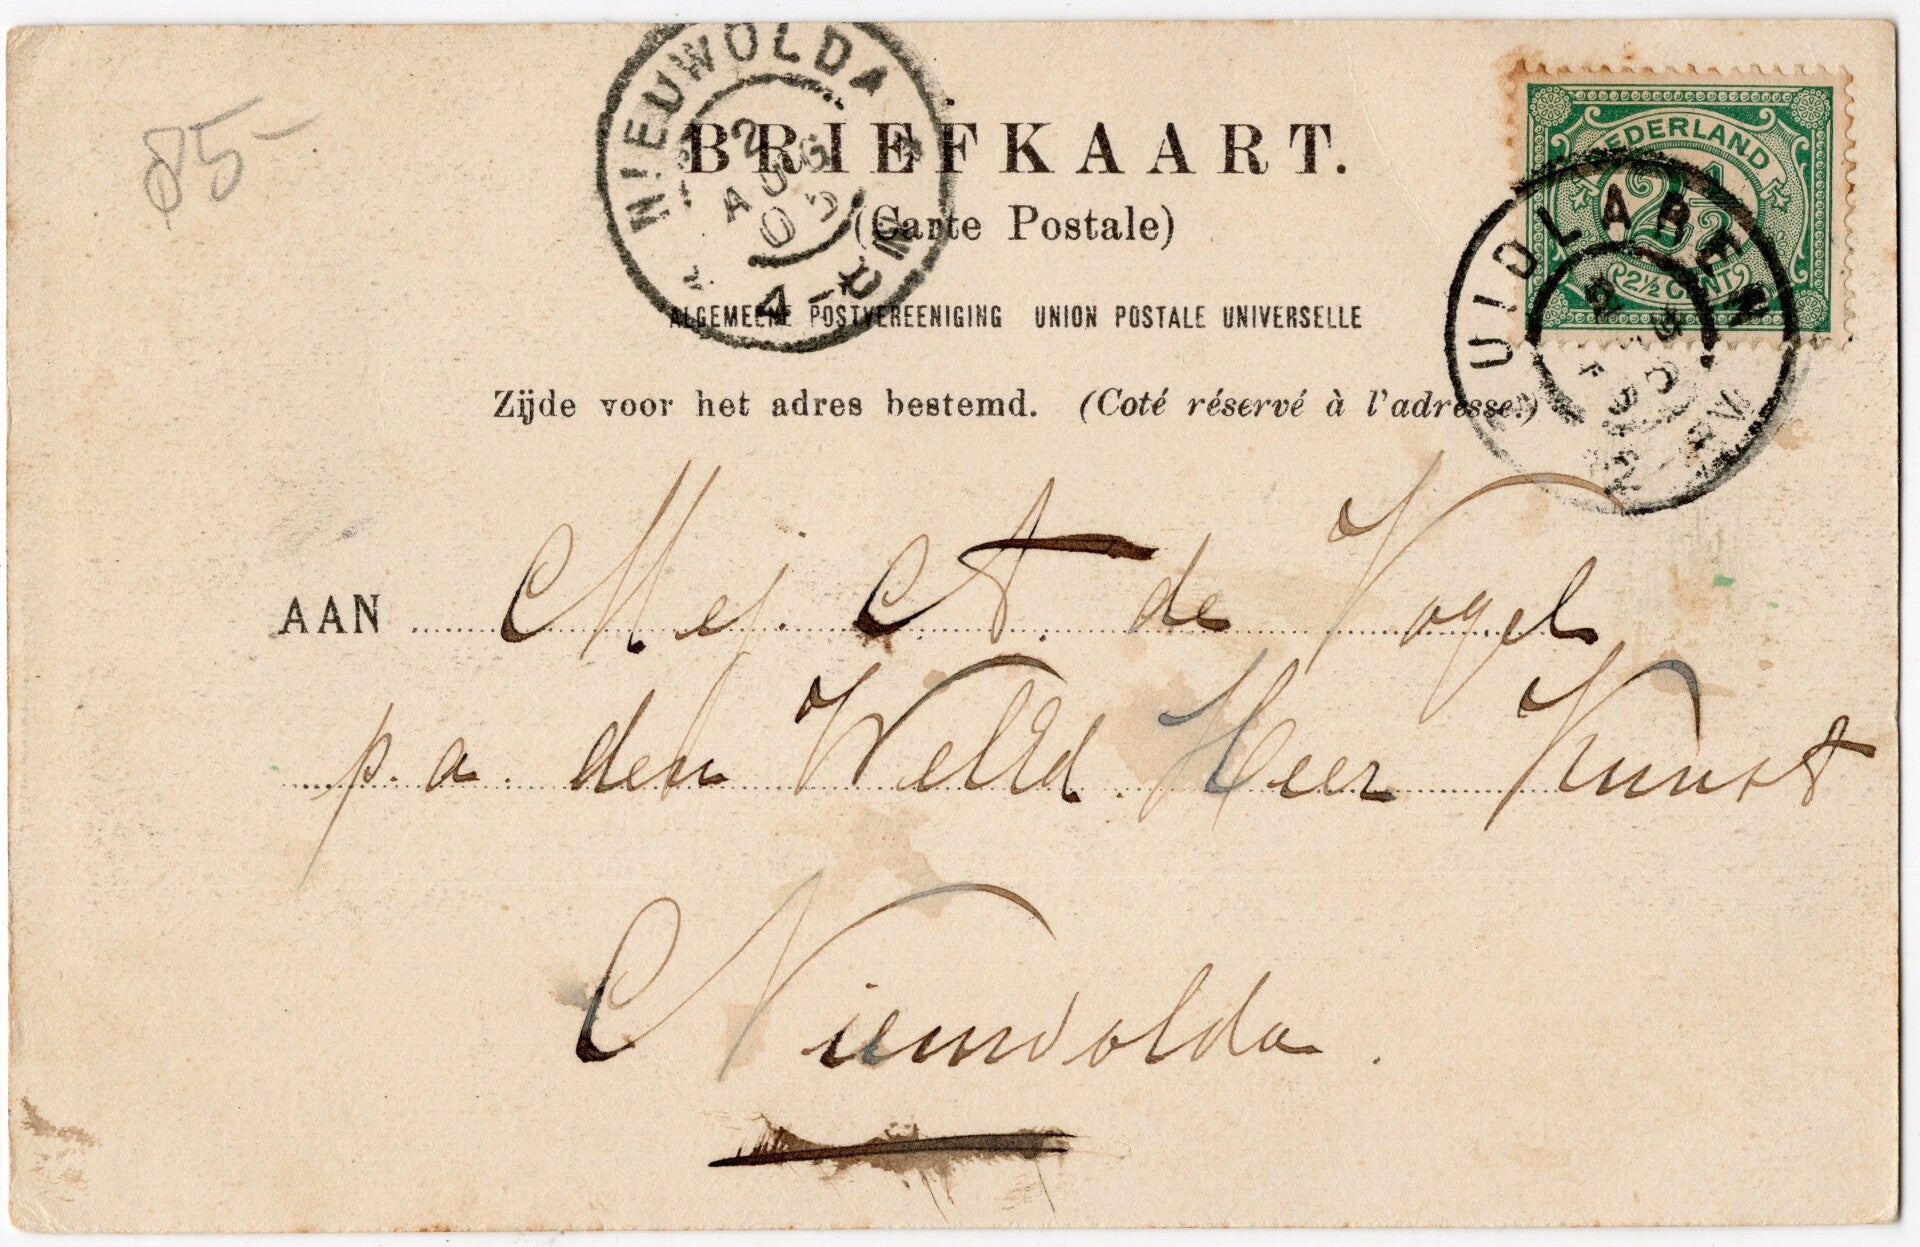 85-
NIEUWOLDA
2 AUG 05
4-
BRIEFKAART.
(Carte Postale)
ALGEMEENE POSTVEREENIGING UNION POSTALE UNIVERSELLE
NEDERLAND
2½
2½ CENT
ZUIDLAREN
Zijde voor het adres bestemd. (Coté réservé à l'adresse.)
AAN Mej. C. A. de Vogel
p.a. den WelEd. Heer Kunst
Nieuwolda.